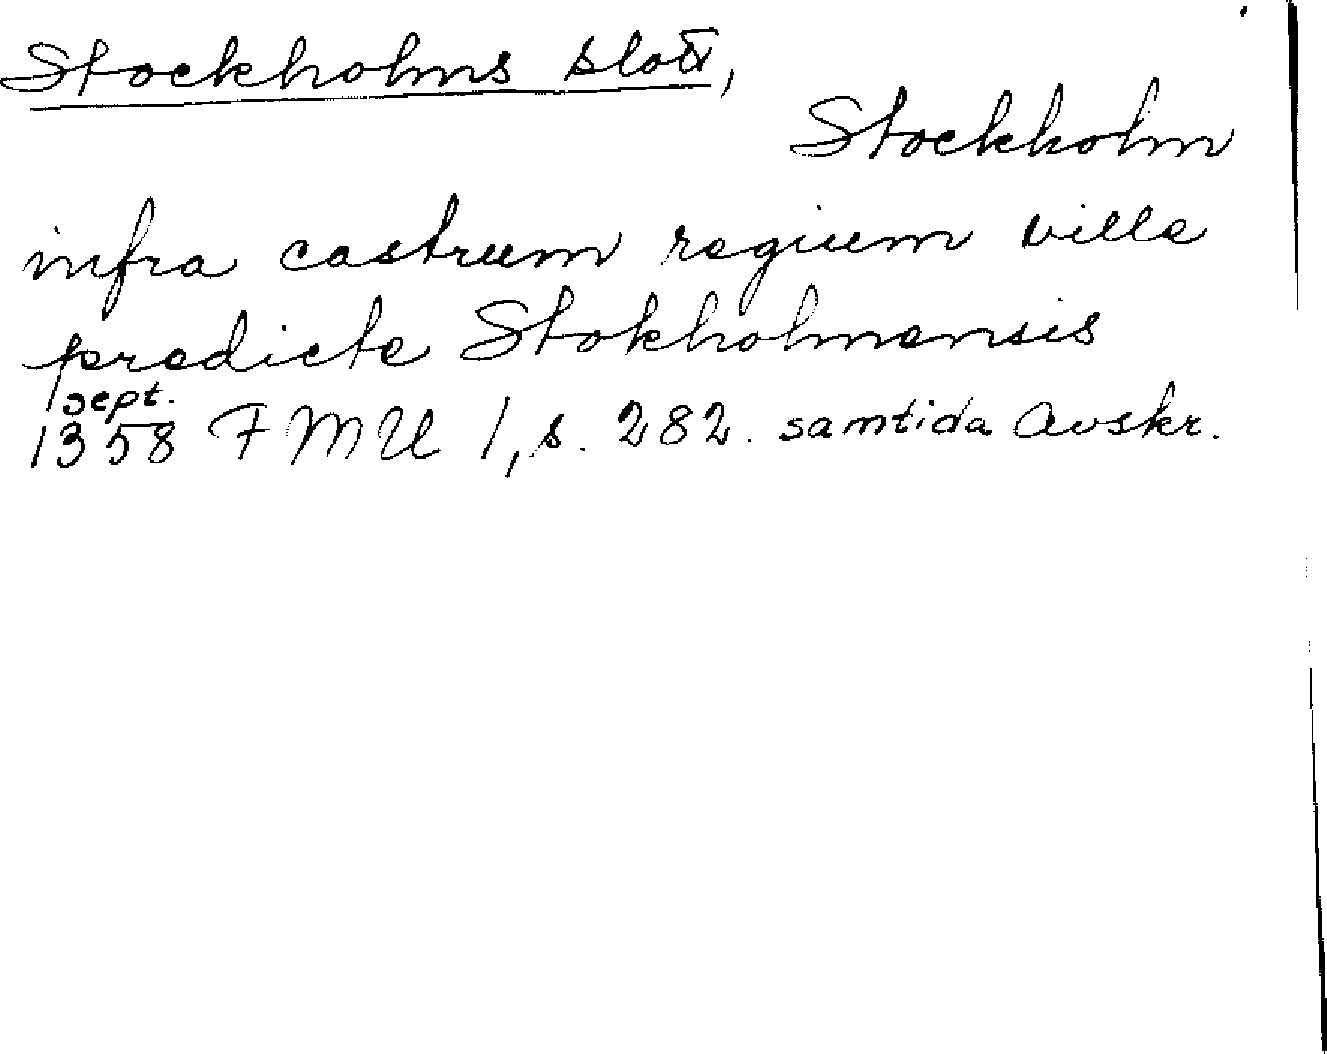 Stockholms slott,
Stockholm
infra castrum regium ville
predicte Stokholmensis
1 sept.
1358 FMU 1, s. 282. samtida avskr.